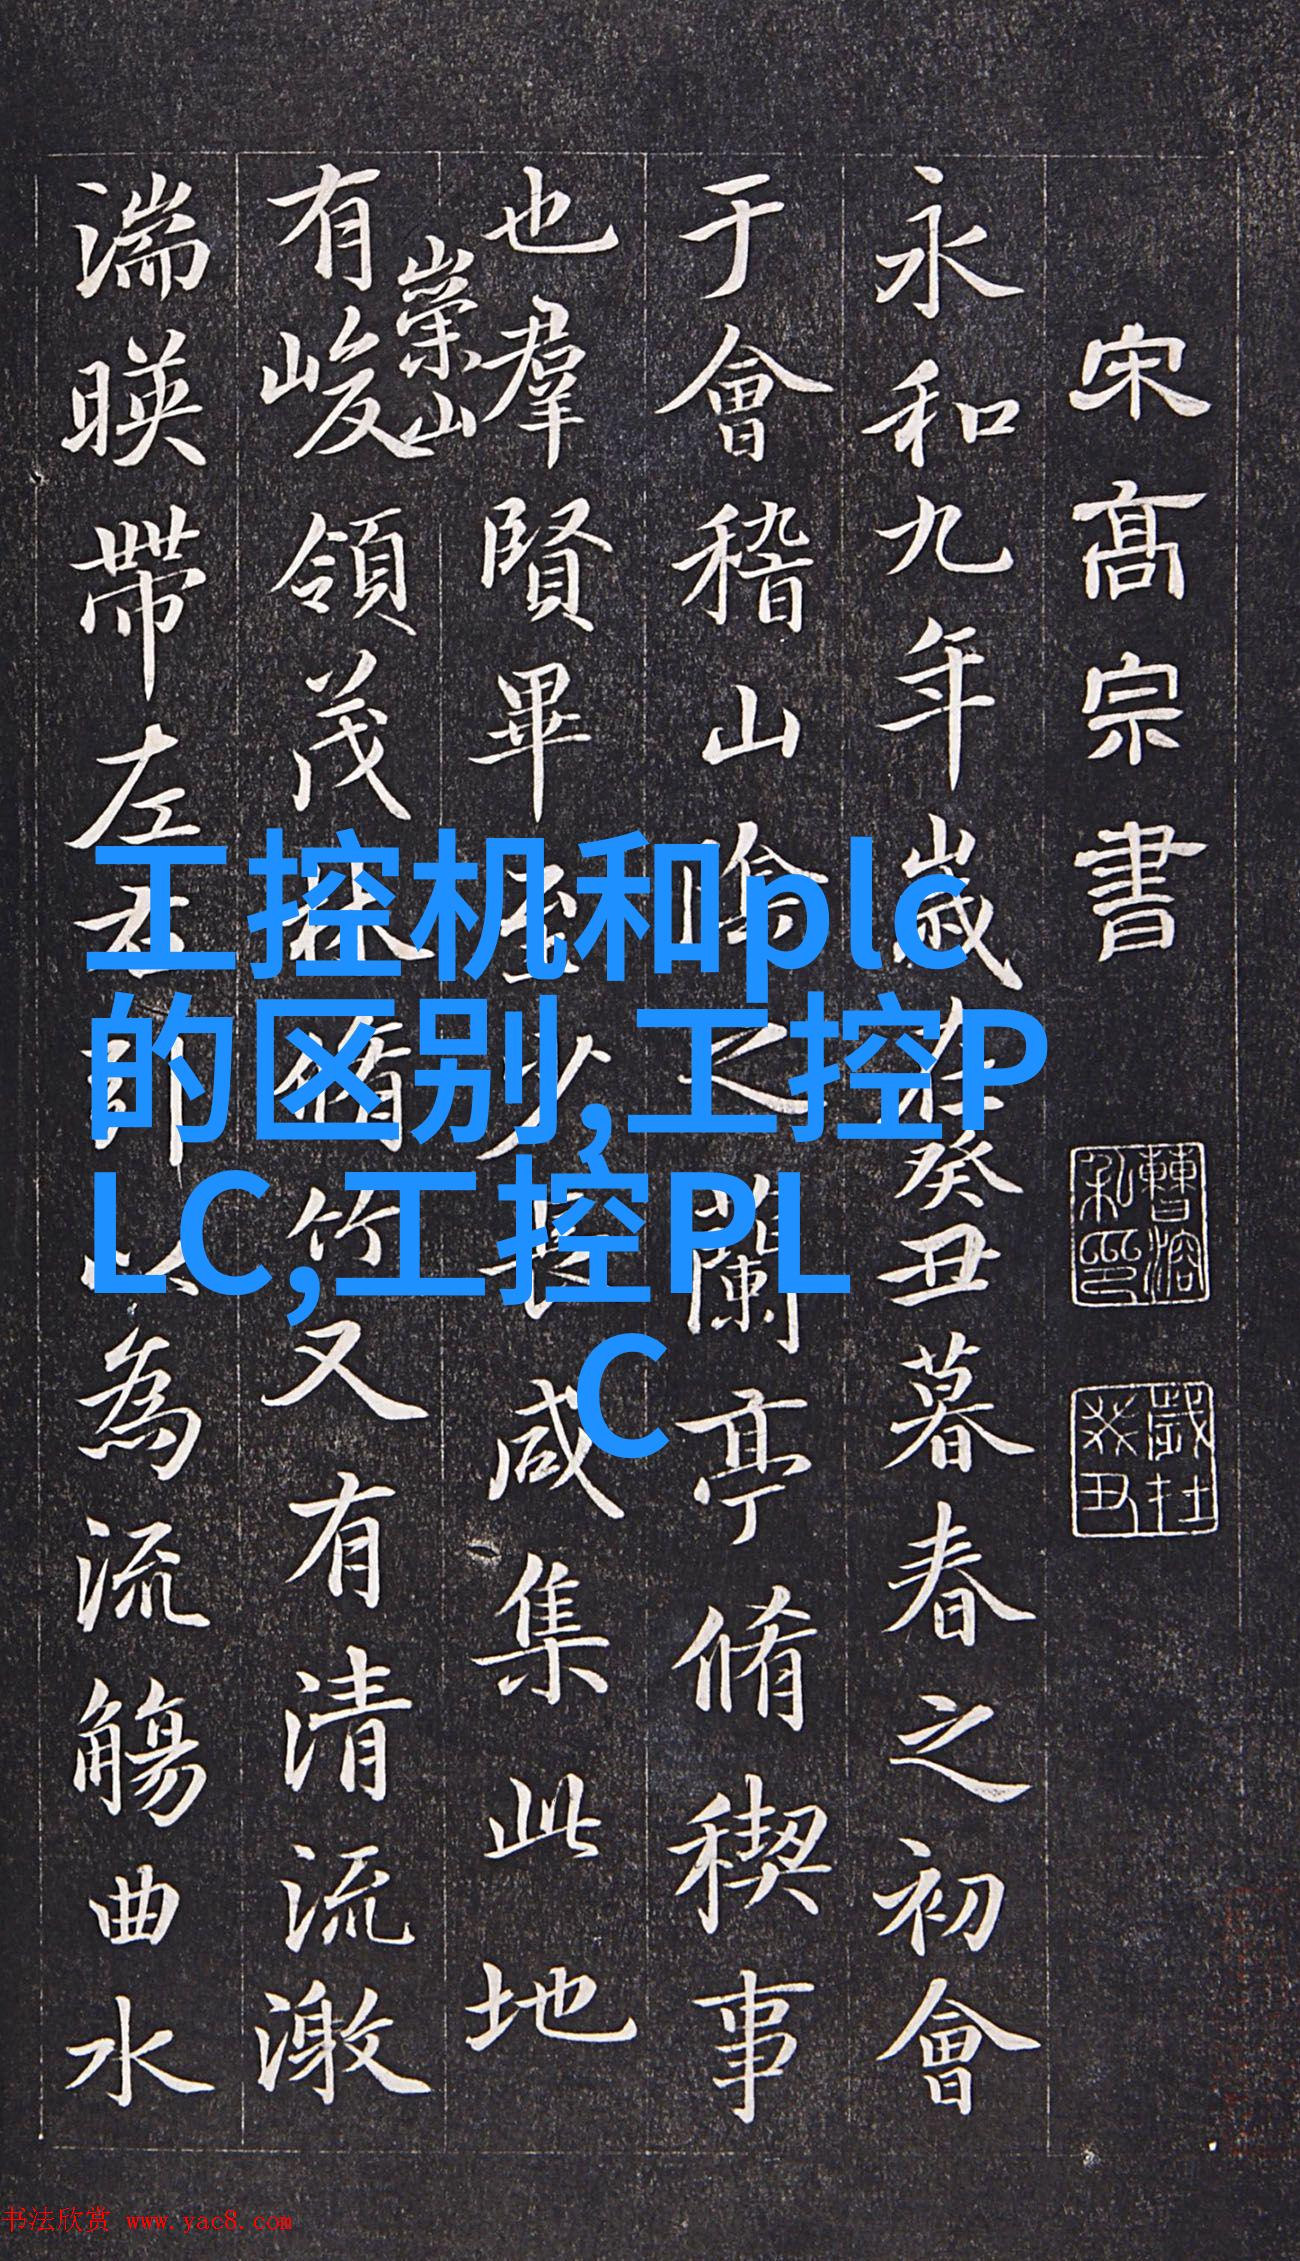 宋髙宗書
曹溶私印
歲在癸丑
永和九年歲在癸丑暮春之初會
于會稽山陰之蘭亭脩稧事
也羣賢畢至少長咸集此地
崇山
有峻領茂林脩竹又有清流激
湍暎帶左右引以為流觴曲水
工控机和plc
的区别,工控P
LC,工控PL
C
书法欣赏 www.yac8.com